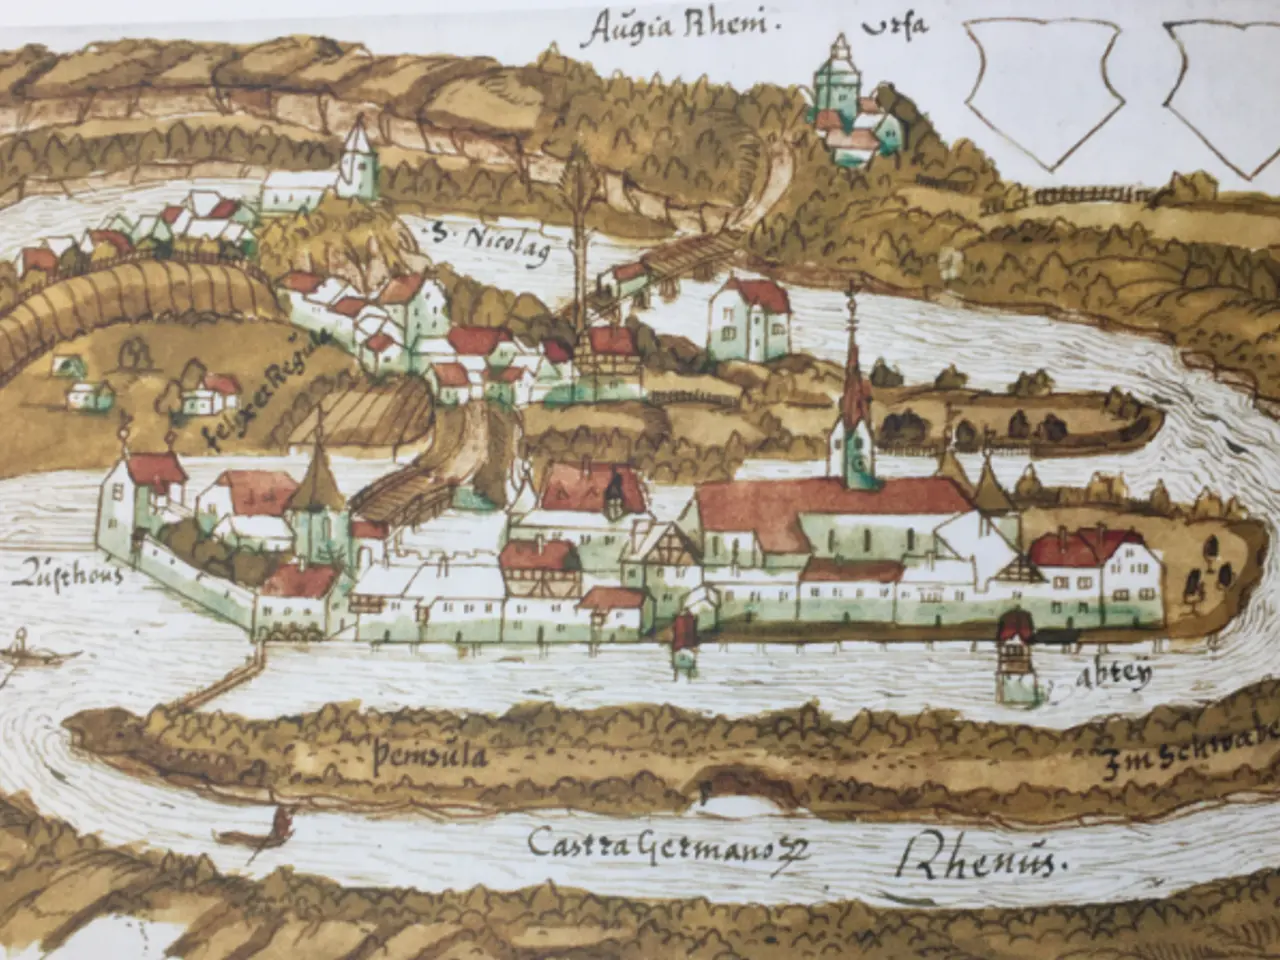 Augia Rheni.
Vrsa
S. Nicolaÿ
felix et Regula
Lusthous
abteÿ
Peninsula
Im Schwabe
Castra Germano
Rhenus.